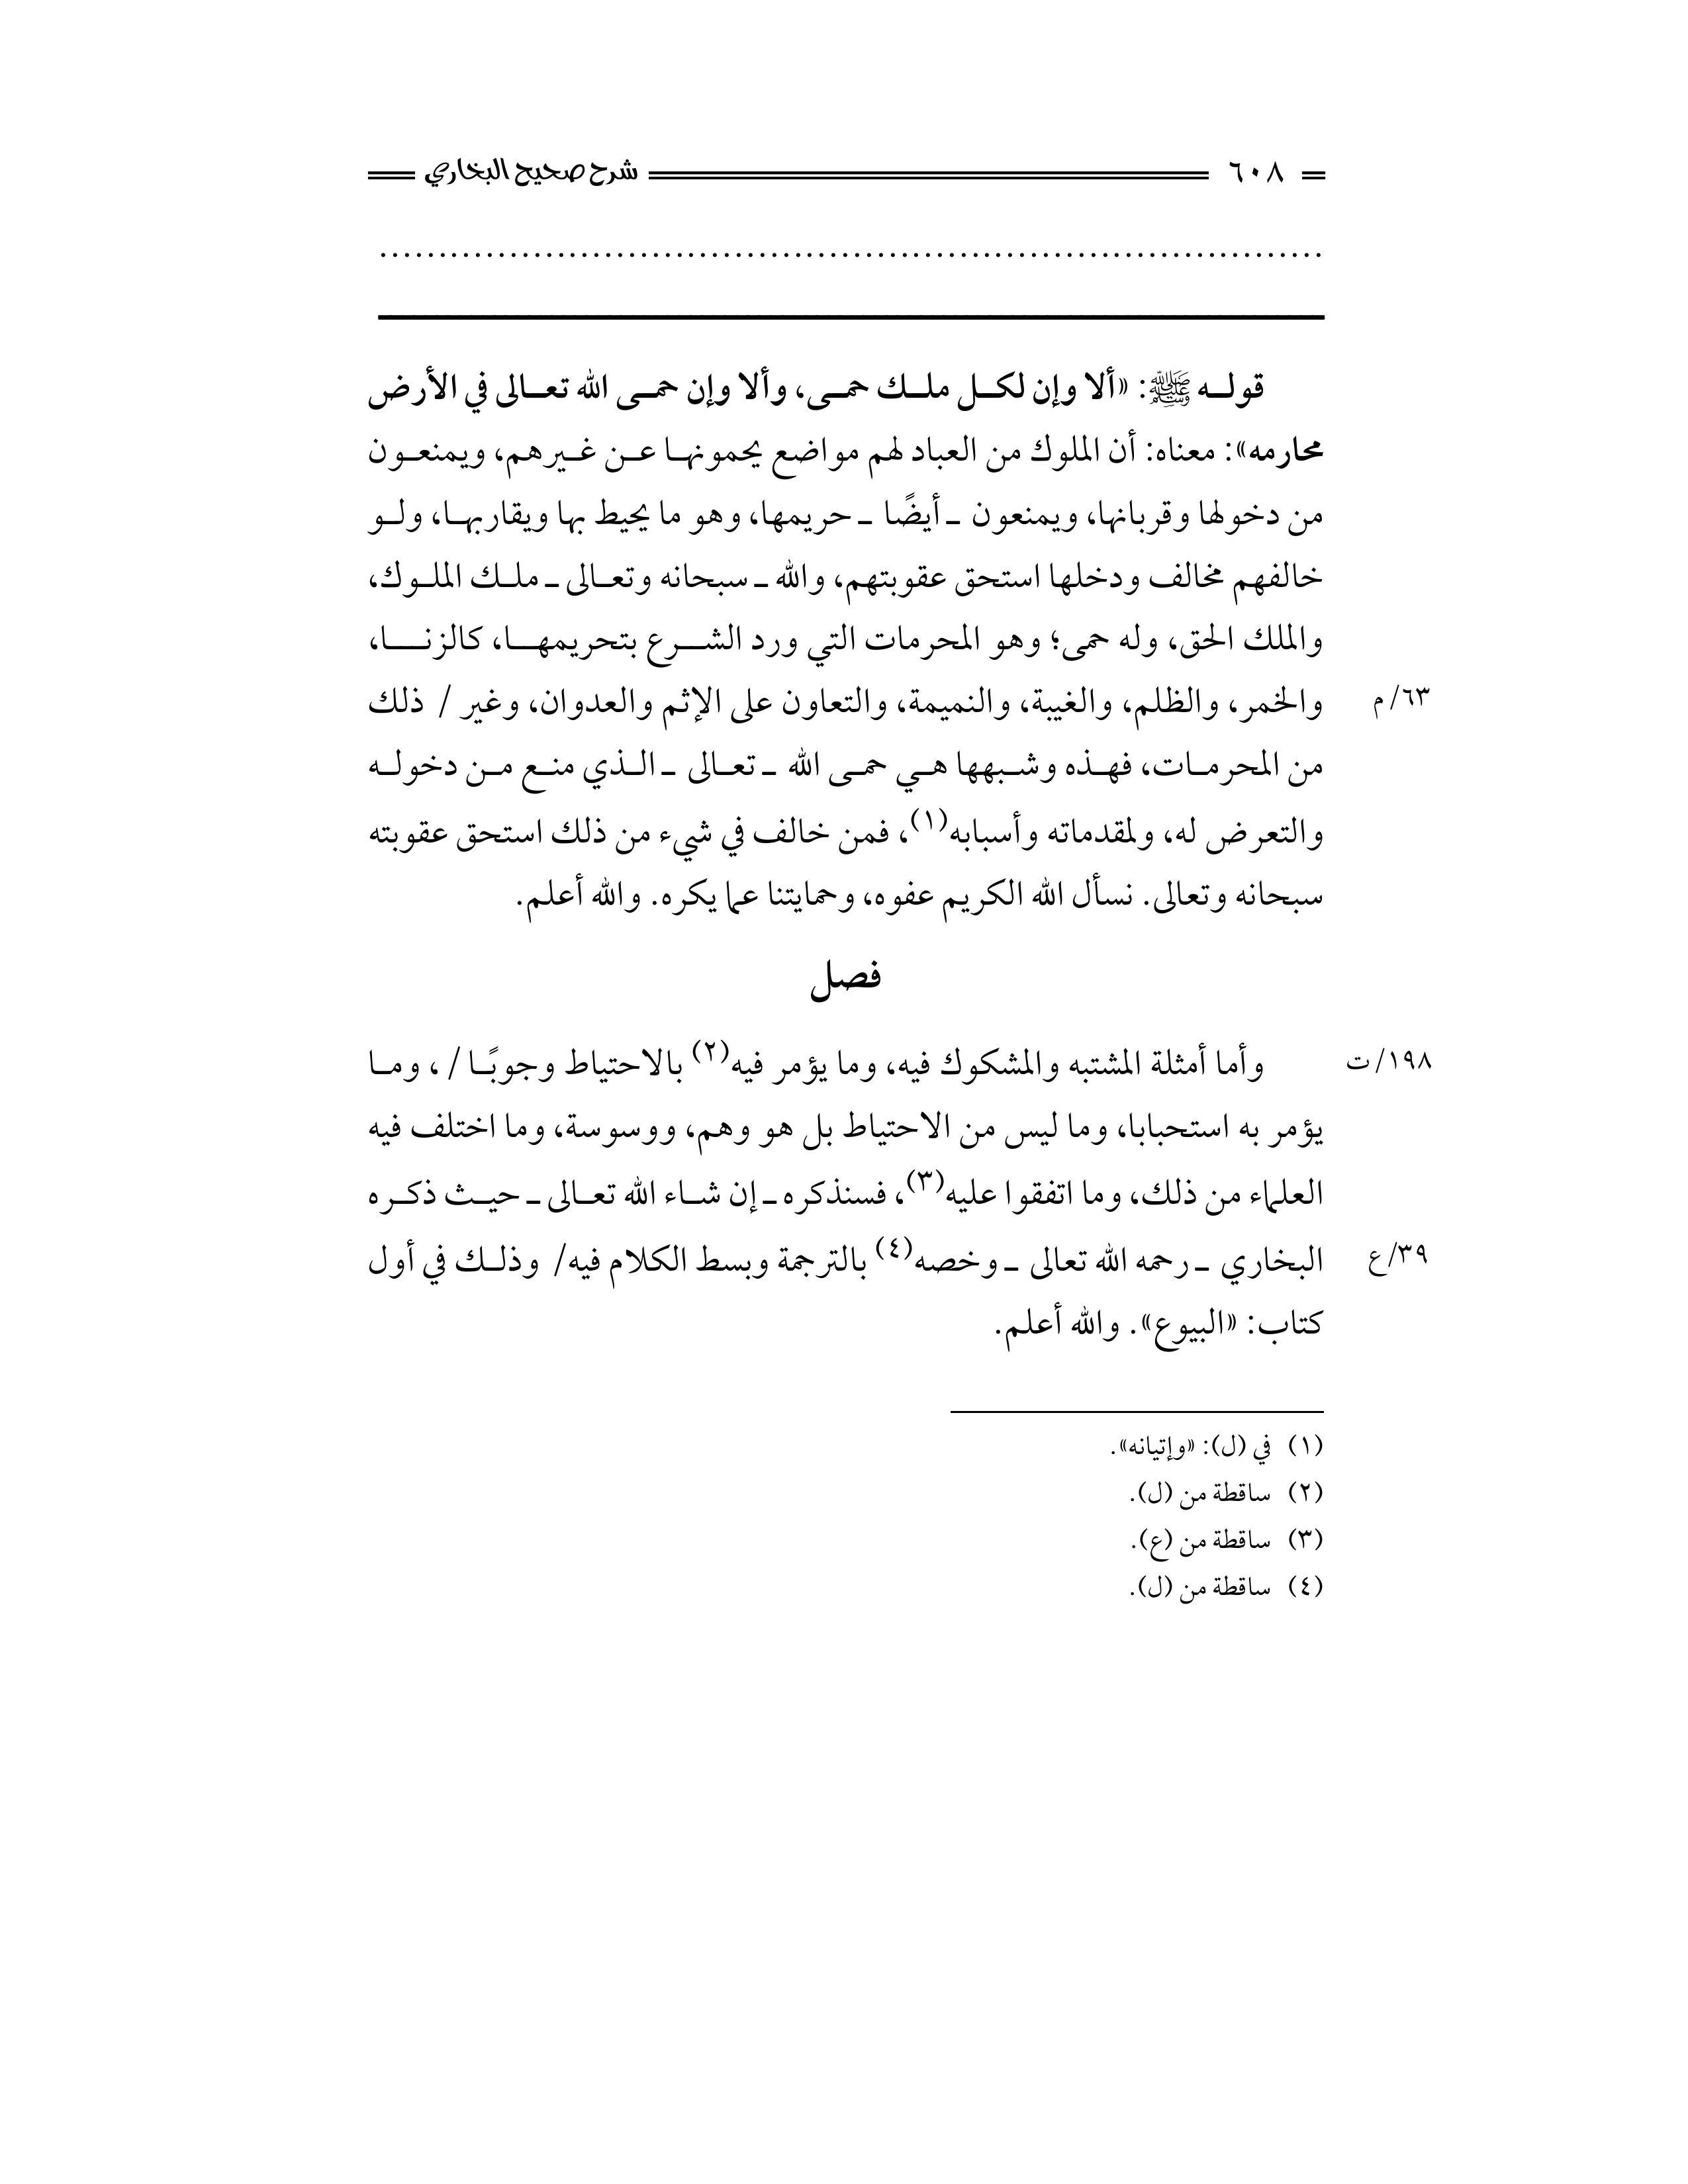 ٦٠٨ شرح صحيح البخاري
................................................................................
قوله ﷺ: «ألا وإن لكل ملك حمى، وألا وإن حمى الله تعالى في الأرض
محارمه»: معناه: أن الملوك من العباد لهم مواضع يحمونها عن غيرهم، ويمنعون
من دخولها وقربانها، ويمنعون ـ أيضًا ـ حريمها، وهو ما يحيط بها ويقاربها، ولو
خالفهم مخالف ودخلها استحق عقوبتهم، والله ـ سبحانه وتعالى ـ ملك الملوك،
والملك الحق، وله حمى؛ وهو المحرمات التي ورد الشرع بتحريمها، كالزنا،
والخمر، والظلم، والغيبة، والنميمة، والتعاون على الإثم والعدوان، وغير / ذلك
٦٣/م
من المحرمات، فهذه وشبهها هي حمى الله ـ تعالى ـ الذي منع من دخوله
والتعرض له، ولمقدماته وأسبابه(١)، فمن خالف في شيء من ذلك استحق عقوبته
سبحانه وتعالى. نسأل الله الكريم عفوه، وحمايتنا عما يكره. والله أعلم.
فصل
وأما أمثلة المشتبه والمشكوك فيه، وما يؤمر فيه(٢) بالاحتياط وجوبًا / ، وما
١٩٨/ت
يؤمر به استحبابا، وما ليس من الاحتياط بل هو وهم، ووسوسة، وما اختلف فيه
العلماء من ذلك، وما اتفقوا عليه(٣)، فسنذكره ـ إن شاء الله تعالى ـ حيث ذكره
البخاري ـ رحمه الله تعالى ـ وخصه(٤) بالترجمة وبسط الكلام فيه/ وذلك في أول
٣٩/ع
كتاب: «البيوع». والله أعلم.
(١) في (ل): «وإتيانه».
(٢) ساقطة من (ل).
(٣) ساقطة من (ع).
(٤) ساقطة من (ل).